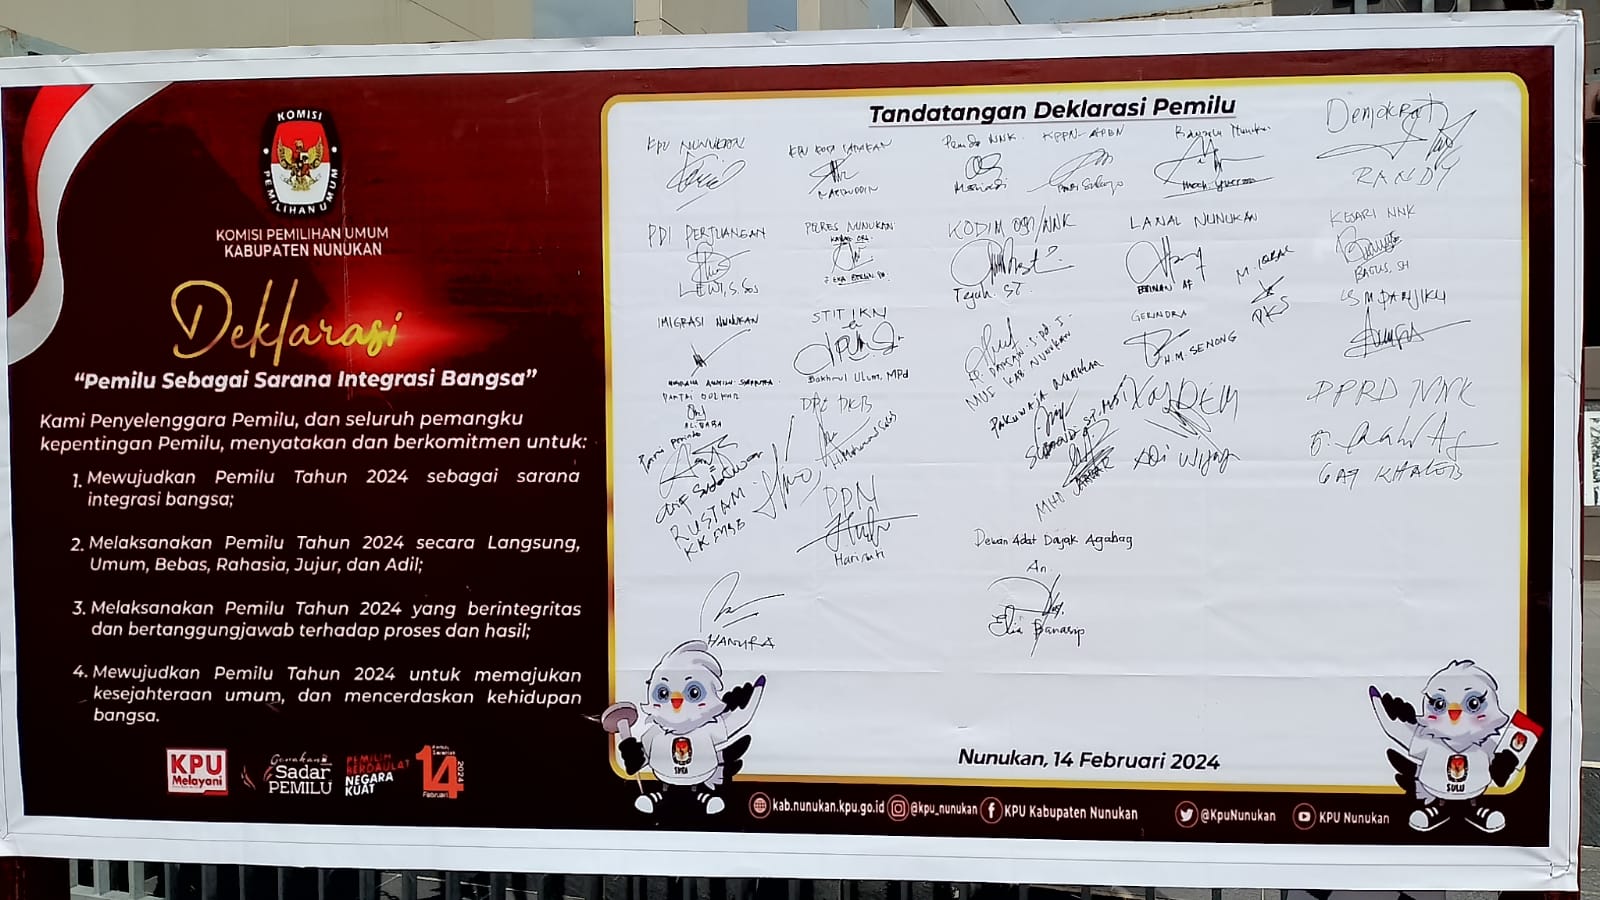 KOMISI
PEMILIHAN UMUM
KOMISI PEMILIHAN UMUM
KABUPATEN NUNUKAN
Deklarasi
“Pemilu Sebagai Sarana Integrasi Bangsa”
Kami Penyelenggara Pemilu, dan seluruh pemangku
kepentingan Pemilu, menyatakan dan berkomitmen untuk:
1. Mewujudkan Pemilu Tahun 2024 sebagai sarana
integrasi bangsa;
2. Melaksanakan Pemilu Tahun 2024 secara Langsung,
Umum, Bebas, Rahasia, Jujur, dan Adil;
3. Melaksanakan Pemilu Tahun 2024 yang berintegritas
dan bertanggungjawab terhadap proses dan hasil;
4. Mewujudkan Pemilu Tahun 2024 untuk memajukan
kesejahteraan umum, dan mencerdaskan kehidupan
bangsa.
KPU
Melayani
Gerakan
Sadar
PEMILU
PEMILIH
BERDAULAT
NEGARA
KUAT
14
Februari
2024
Tandatangan Deklarasi Pemilu
KPU NUNUKAN
KPU KOTA TARAKAN
Pemda NNK
KPPN-APBN
Demokrat
RANDY
PDI PERJUANGAN
LEWI, S.Sos
POLRES NUNUKAN
KODIM 0911/NNK
Teguh. ST.
LANAL NUNUKAN
KEJARI NNK
BAGUS, SH
M. IQBAL
PKS
IMIGRASI NUNUKAN
STIT IKN
Bakhrul Ulum, MPd
MUI KAB NUNUKAN
GERINDRA
H.M. SENONG
PARTAI GOLKAR
DPC PKB
RUSTAM
PPN
HANURA
NASDEM
DPRD NNK
Dewan Adat Dayak Agabag
An.
Elia Banasip
SURA
SULU
Nunukan, 14 Februari 2024
kab.nunukan.kpu.go.id @kpu_nunukan KPU Kabupaten Nunukan @KpuNunukan KPU Nunukan